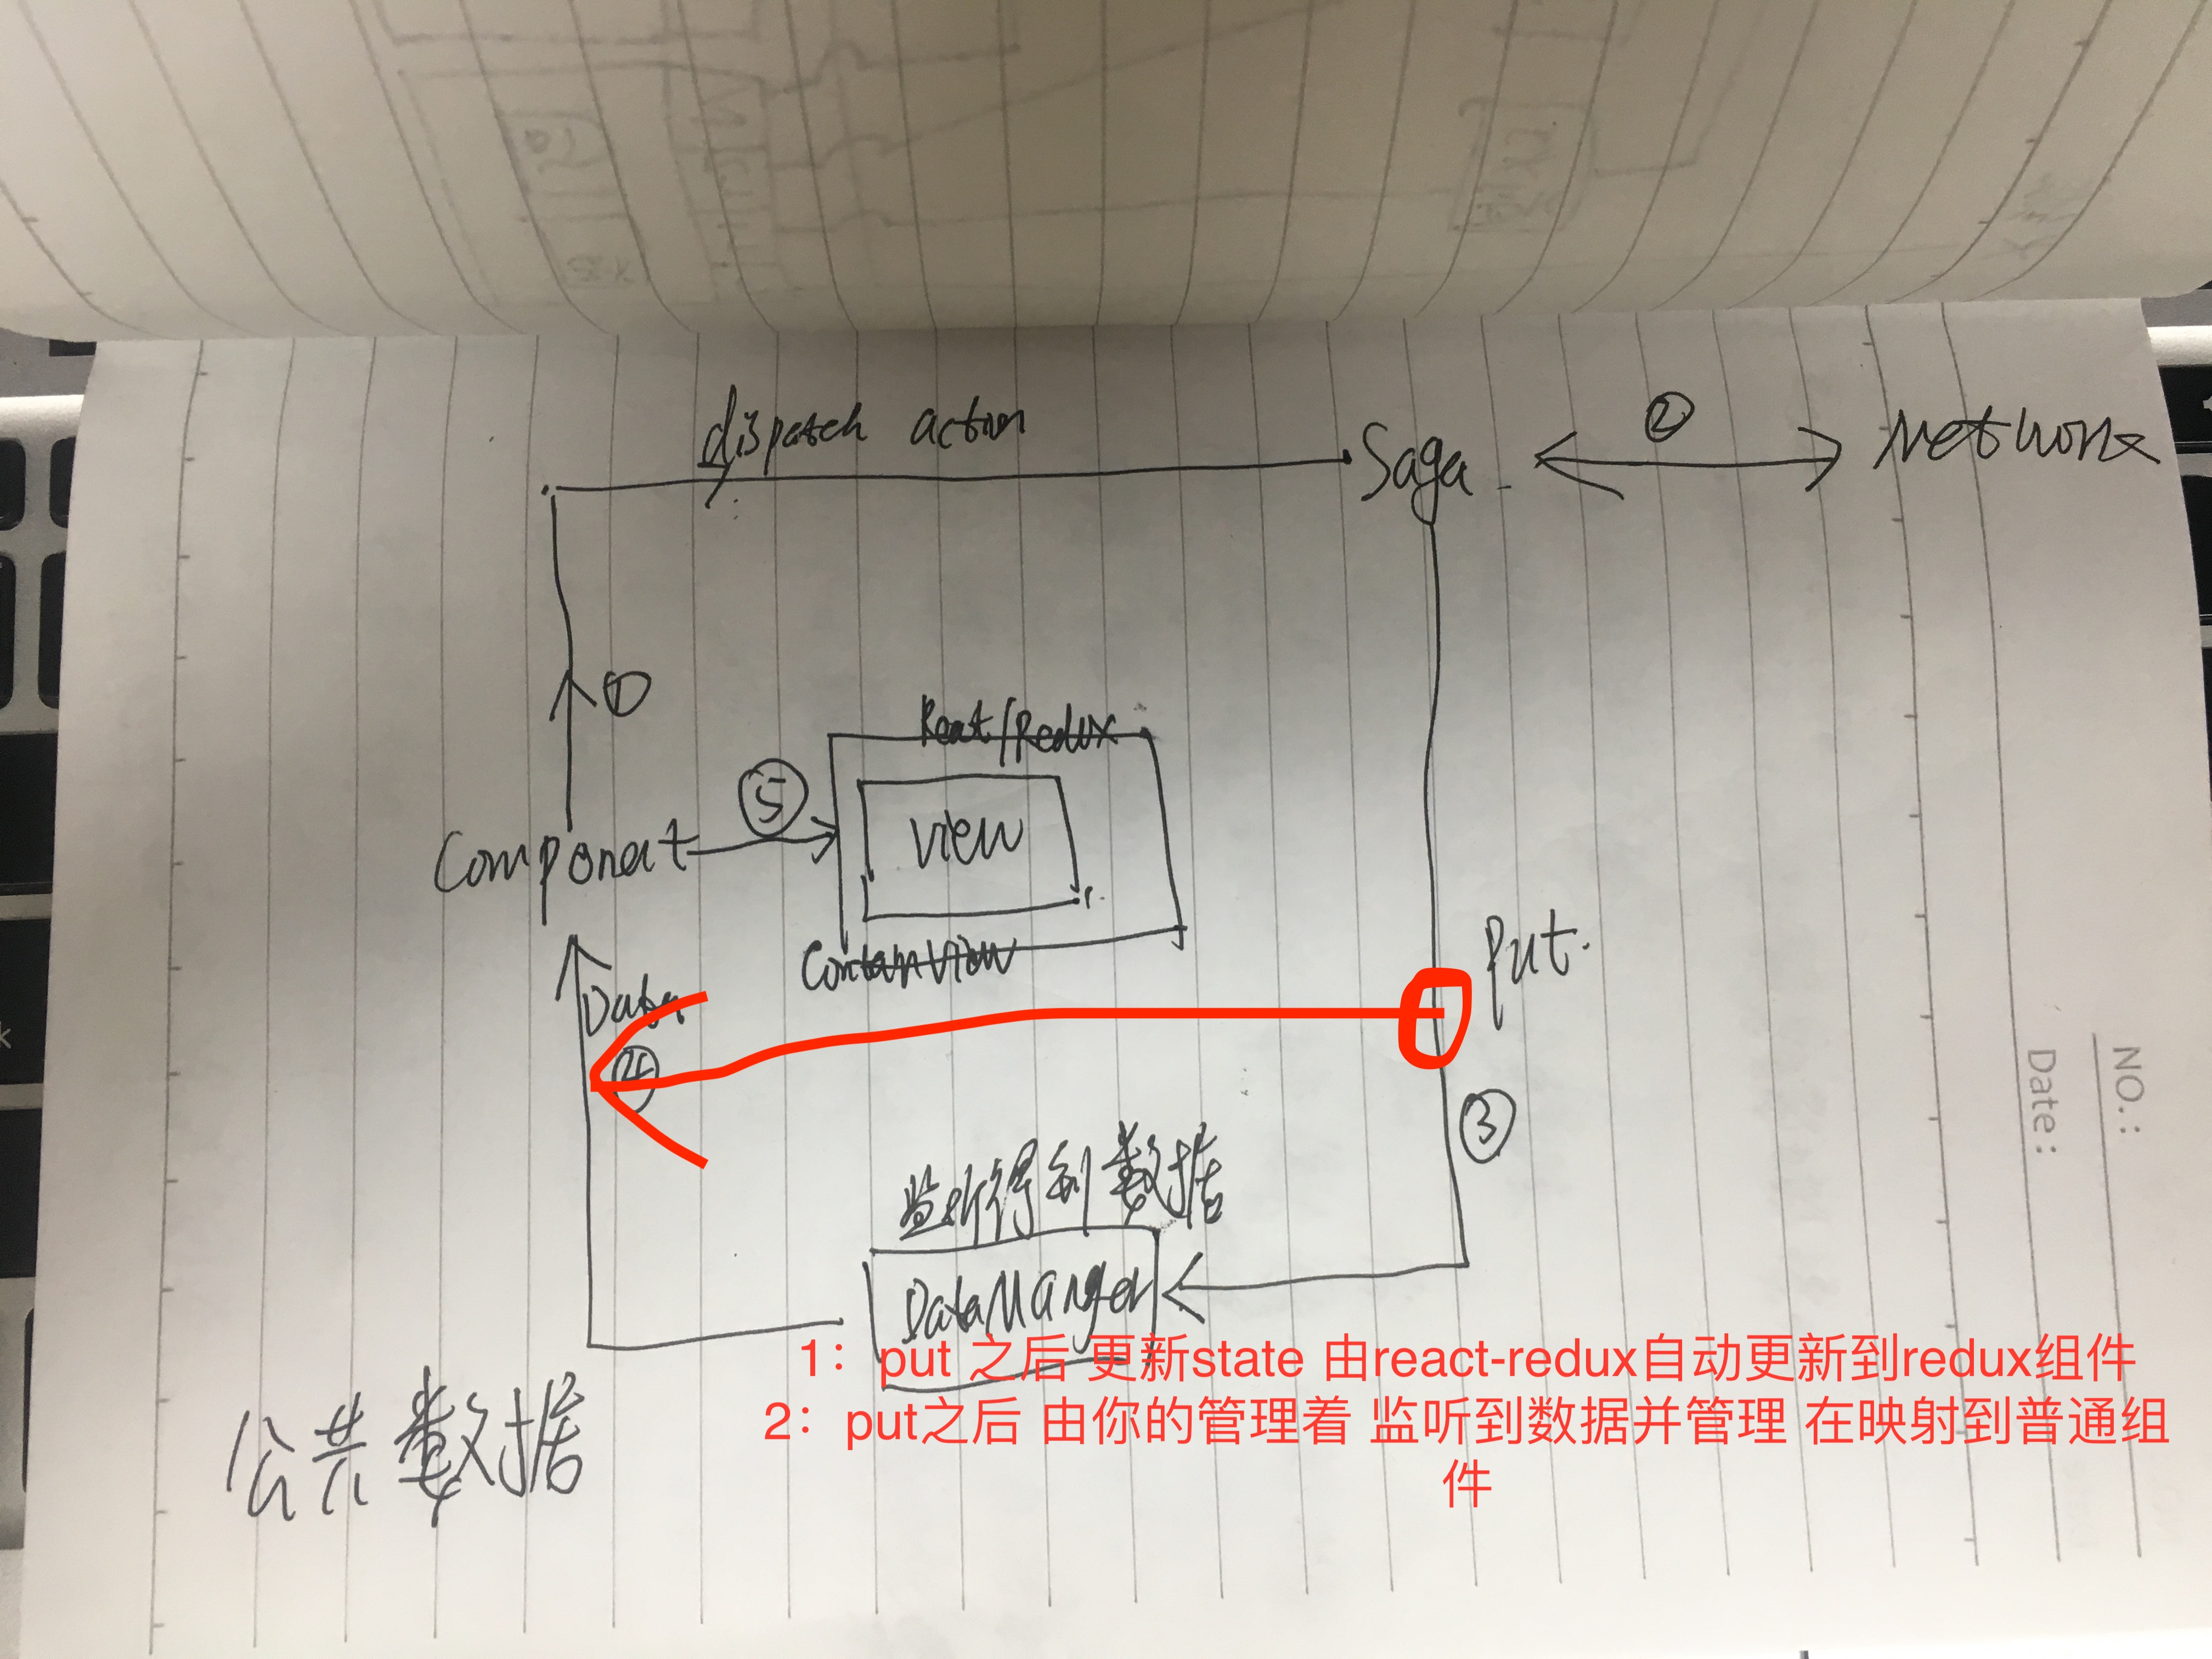 dispatch action
Saga
②
Network
①
Reat/Redux
⑤
View
Component
ContainView
Put.
Data
④
③
监听得到数据
DataManger
1：put 之后 更新state 由react-redux自动更新到redux组件
2：put之后 由你的管理着 监听到数据并管理 在映射到普通组
件
公共数据
NO.:
Date: